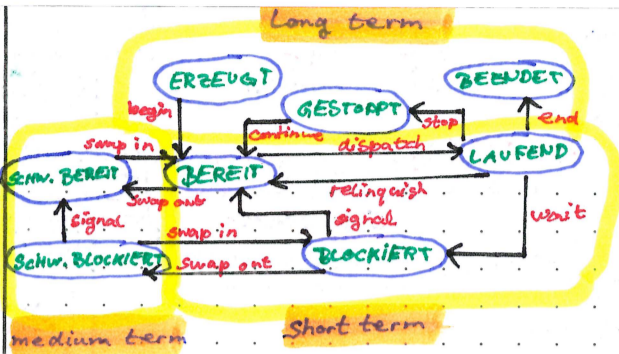 Long term
ERZEUGT
BEENDET
begin
GESTOPPT
stop
end
continue
swap in
dispatch
SCHW. BEREIT
BEREIT
LAUFEND
swap out
relinquish
signal
signal
wait
swap in
SCHW. BLOCKIERT
BLOCKIERT
swap out
medium term
Short term